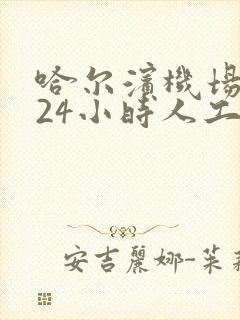 哈尔濱機場
24小時人工
安吉麗娜-茱